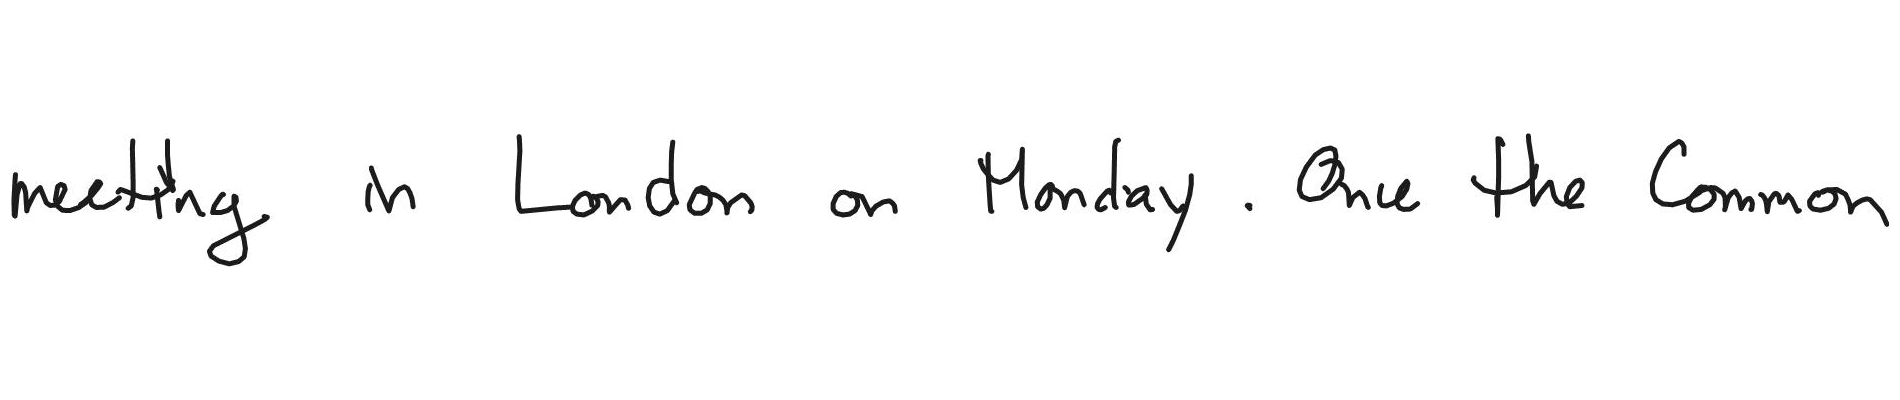 meeting in London on Monday. Once the Common